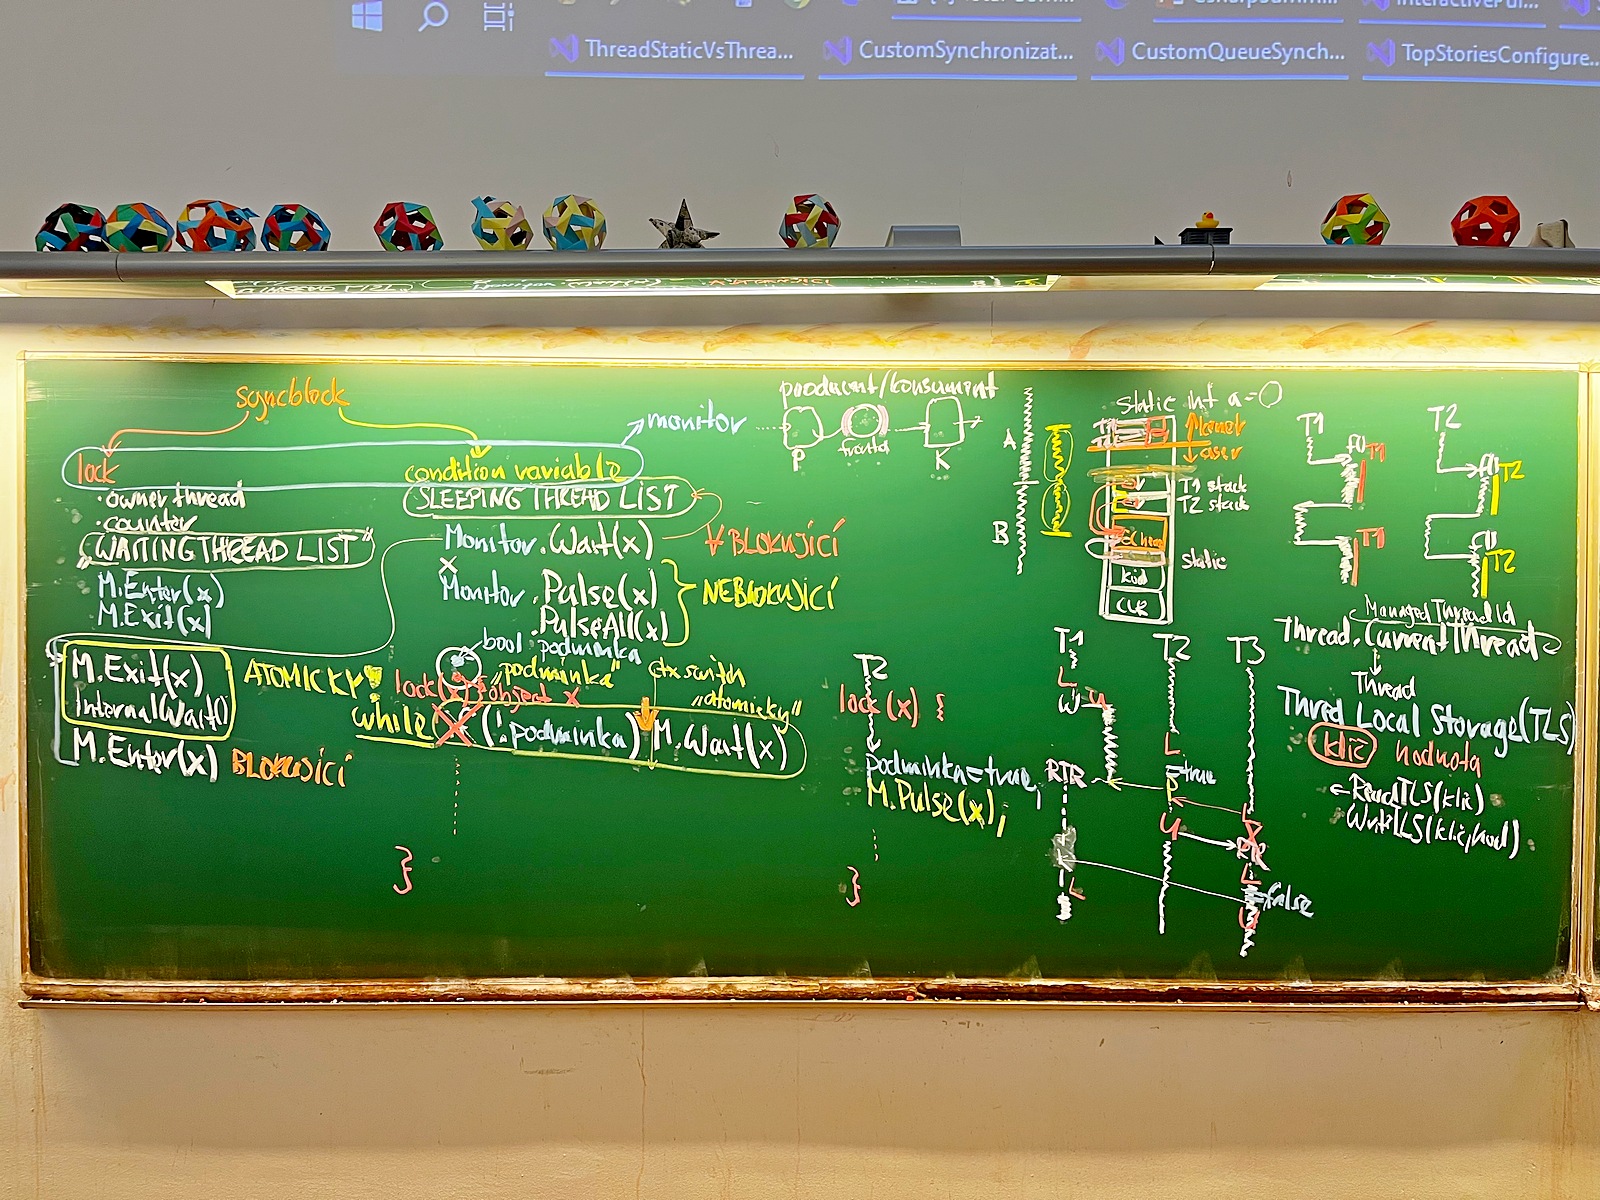 ThreadStaticVsThrea...
CustomSynchronizat...
CustomQueueSynch...
TopStoriesConfigure...
syncblock
monitor
lock
• owner thread
• counter
"WAITING THREAD LIST"
M.Enter(x)
M.Exit(x)
M.Exit(x)
internalWait()
M.Enter(x) BLOKUJÍCÍ
ATOMICKY!
condition variable
SLEEPING THREAD LIST
Monitor.Wait(x)
BLOKUJÍCÍ
X
Monitor.Pulse(x)
.PulseAll(x)
NEBLOKUJÍCÍ
bool podminka
"podminka"
lock(x) {
object x
ctx switch
"atomicky"
while (!podminka) M.Wait(x)
}
producent/konsument
P
fronta
K
T2
lock (x) {
podminka=true;
M.Pulse(x);
}
A
B
static int a=0
kernel
user
T1 stack
T2 stack
static
kód
CLR
T1
T2
T3
L
W
RTR
L
L
=true
P
U
L
L
=false
U
T1
f()
T1
T1
T2
f()
T2
T2
ManagedThreadId
Thread.CurrentThread
Thread
Thred Local Storage (TLS)
klíč hodnota
ReadTLS(klíč)
WriteTLS(klíč,hod)